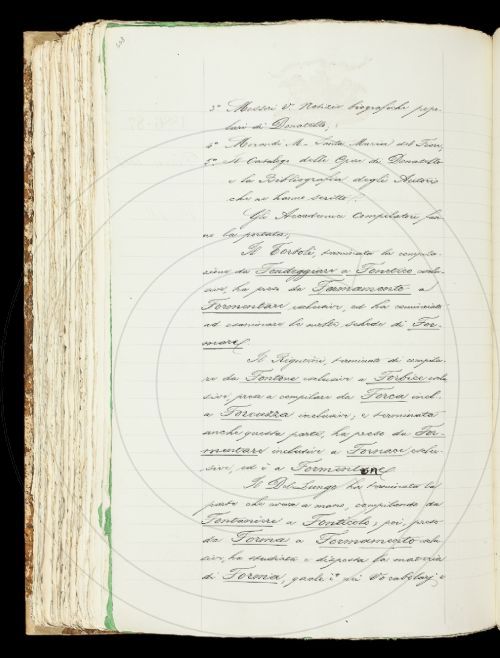 3° Musseri V. Notizie biografiche popo-
lari di Donatello;
4° Morandi M. Santa Maria del Fiore;
5° Il Catalogo delle Opere di Donatello
e la Bibliografia degli Autori
che ne hanno scritto.
Gli Accademici Compilatori fan-
no la portata;
Il Tortoli, terminata la compila-
zione da Fondeggiare a Fonetico esclu-
sive, ha preso da Formamento a
Formentare exclusive, ed ha cominciato
ad esaminare le nostre schede di For-
mare.
Il Rigutini, terminato di compila-
re da Fontone exclusive a Forbice esclu-
sive, prese a compilare da Forca incl.
a Forcuzza inclusive; e terminata
anche questa parte, ha preso da For-
mentare inclusive a Fornace exclu-
sive, ed è a Formentone.
Il Del-Lungo ha terminato la
parte che aveva a mano, compilando da
Fontaniere a Fonticolo; poi, preso
da Forma a Formamento esclu-
sive, ha studiata e disposta la materia
di Forma, quale è nei Vocabolarj, e